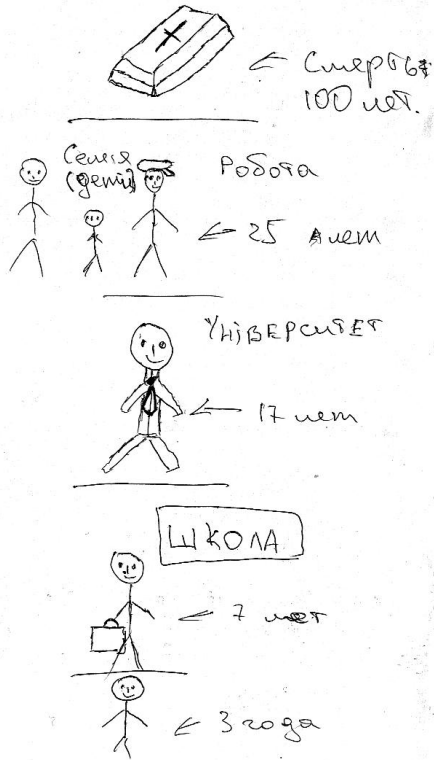 Смерть
100 лет.
Семья
(дети)
Робота
25 лет
УНіВЕРСИТЕТ
17 лет
ШКОЛА
7 лет
3 года